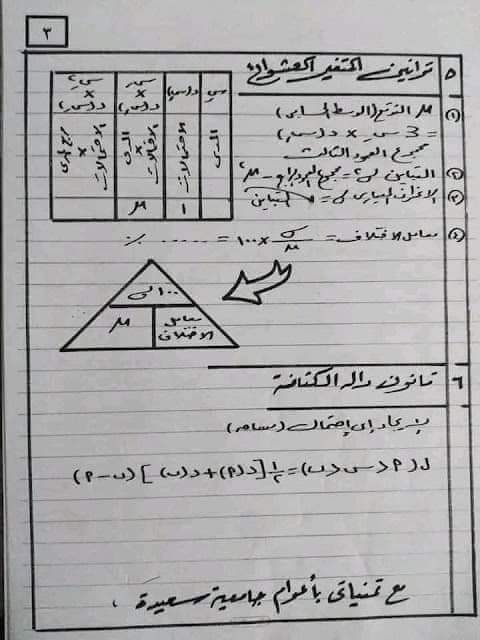 ٣
٥ قوانين المتغير العشوائى
① μ التوقع (الوسط الحسابى)
= 3 س × د(س)
مجموع العمود الثالث
② التباين σ² = مجموع العمود الرابع - μ²
③ الانحراف المعيارى σ = √التباين
④ معامل الاختلاف = σ/μ × ١٠٠ = ...... ٪
س | د(س) | س × د(س) | س² × د(س)
المدى | الاحتمالات | المدى × الاحتمالات | مربع المدى × الاحتمالات
١ | μ
١٠٠ σ
μ | معامل الاختلاف
٦ قانون دالة الكثافة
لإيجاد أى احتمال (مساحة)
ل(٢ > س > ب) = ½ [د(٢) + د(ب)] (ب - ٢)
مع تمنياتى بأعوام جامعية سعيدة ،